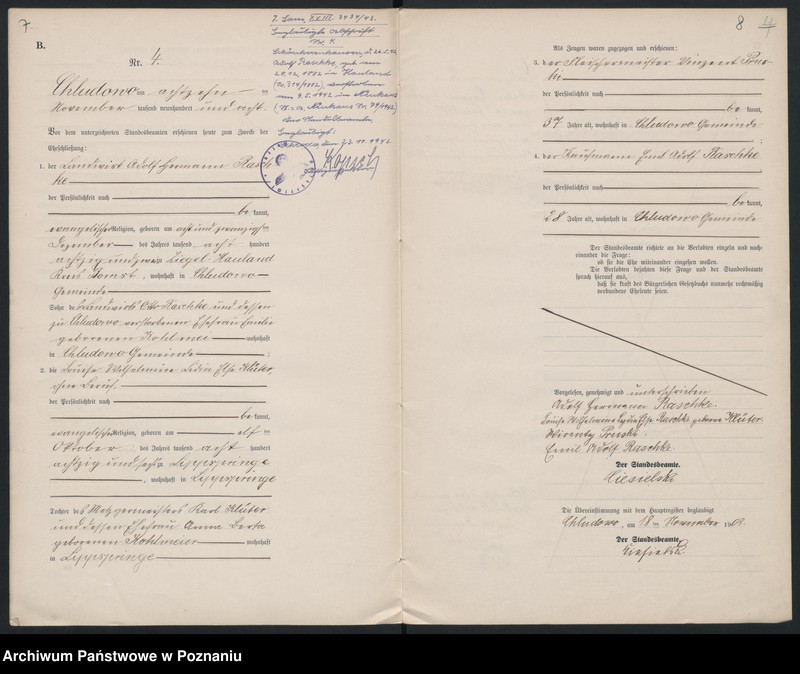 7.
B.
Nr. 4.
7. Sam. XXIII. 3434/42.
Beglaubigte Abschrift
Adolf Raschke, geb. am
28.12.1882 in Hauland
am 9.5.1942 in
Der Standesbeamte
Beglaubigt:
Chludowo am achtzehn ten
November tausend neunhundert und acht.
Vor dem unterzeichneten Standesbeamten erschienen heute zum Zwecke der
Eheschließung:
1. der Landwirt Adolf Hermann Rasch-
ke
der Persönlichkeit nach
be kannt,
evangelischer Religion, geboren am acht und zwanzigsten
Dezember des Jahres tausend acht hundert
achtzig und zwei Ziegel-Hauland
Kreis Bomst, wohnhaft in Chludowo
Gemeinde
Sohn des Landwirts Otto Raschke und dessen
zu Chludowo verstorbenen Ehefrau Emilie
geborenen Kohlmei wohnhaft
in Chludowo Gemeinde ;
2. die Louise Wilhelmine Lidia Else Klüter,
ohne Beruf,
der Persönlichkeit nach
be kannt,
evangelischer Religion, geboren am elf ten
Oktober des Jahres tausend acht hundert
achtzig und sechs Lippspringe
, wohnhaft in Lippspringe
Tochter des Metzgermeisters Karl Klüter
und dessen Ehefrau Anna Berta
geborenen Kohlmeier wohnhaft
in Lippspringe
8
Als Zeugen waren zugezogen und erschienen:
3. der Fleischermeister Vinzent Prus-
ki
der Persönlichkeit nach
be kannt,
37 Jahre alt, wohnhaft in Chludowo Gemeinde
;
4. der Kaufmann Emil Adolf Raschke
der Persönlichkeit nach
be kannt,
28 Jahre alt, wohnhaft in Chludowo Gemeinde
Der Standesbeamte richtete an die Verlobten einzeln und nach-
einander die Frage:
ob sie die Ehe miteinander eingehen wollen.
Die Verlobten bejahten diese Frage und der Standesbeamte
sprach hierauf aus,
daß sie kraft des Bürgerlichen Gesetzbuchs nunmehr rechtmäßig
verbundene Eheleute seien.
Vorgelesen, genehmigt und unterschrieben
Adolf Hermann Raschke.
Louise Wilhelmine Lydia Else Raschke geborene Klüter.
Wincenty Pruski.
Emil Adolf Raschke.
Der Standesbeamte.
Ciesielski
Die Übereinstimmung mit dem Hauptregister beglaubigt
Chludowo, am 18 ten November 1908.
Der Standesbeamte.
Ciesielski.
Archiwum Państwowe w Poznaniu